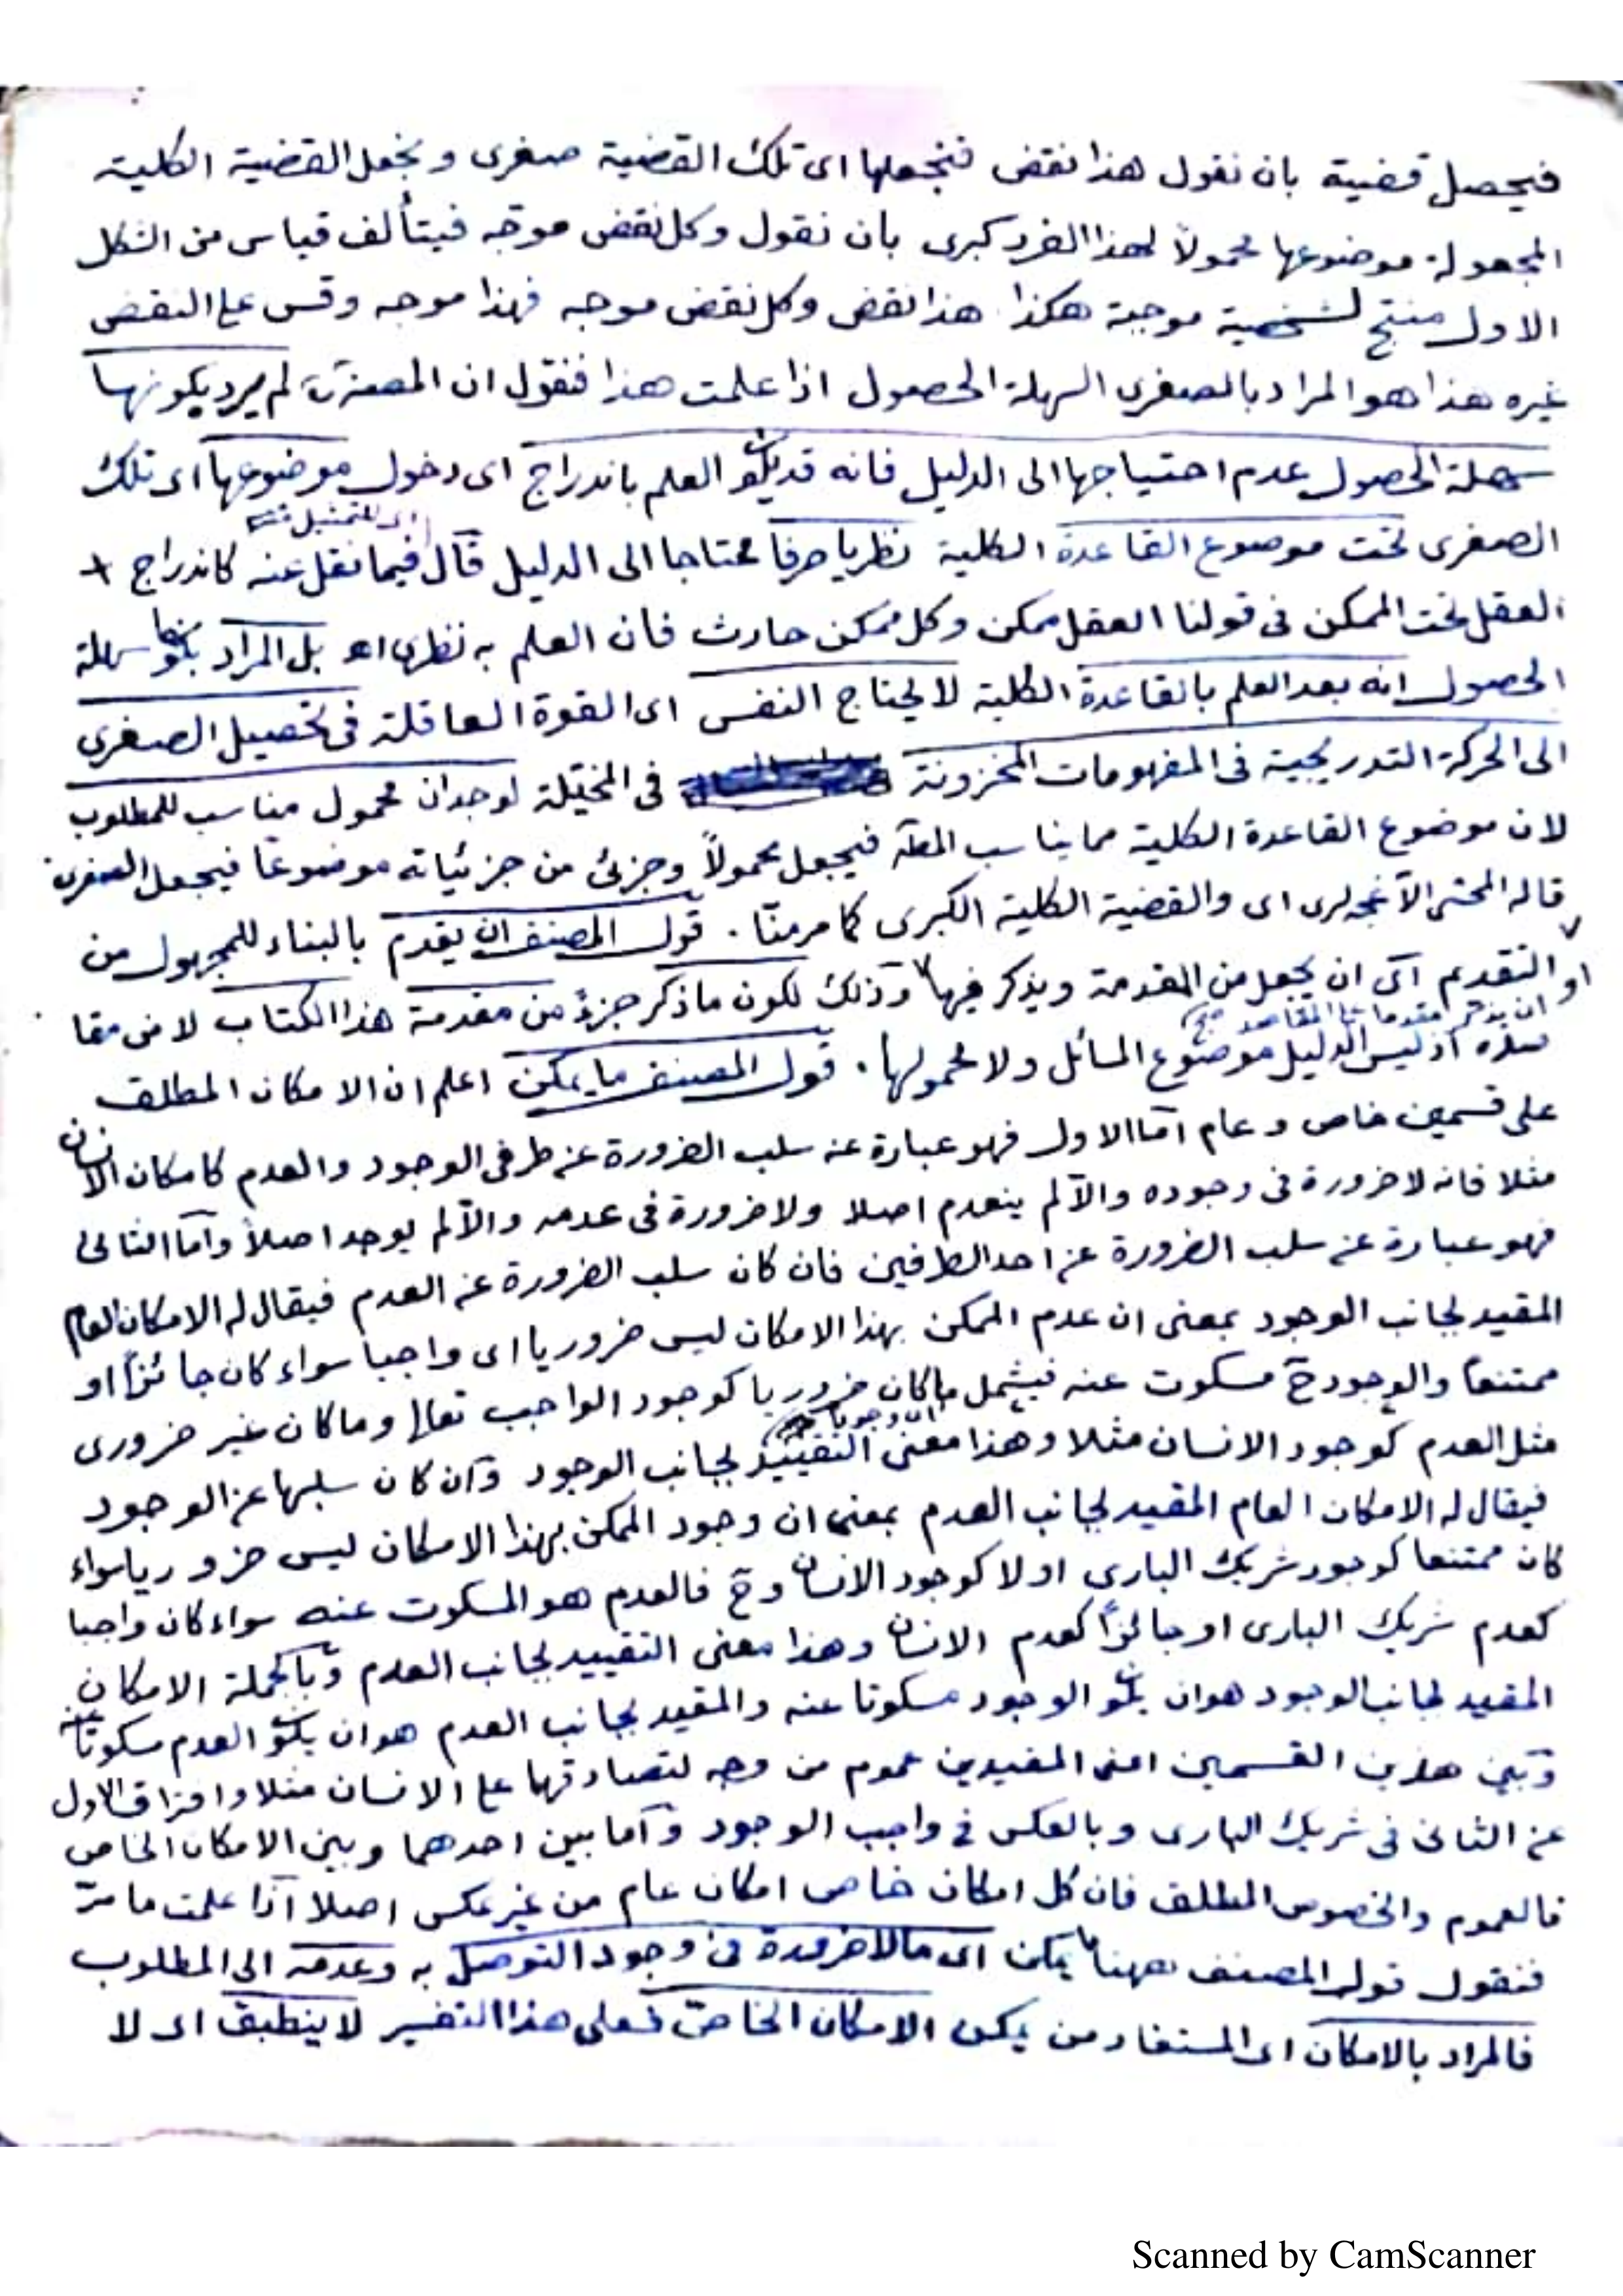 فيحصل قضية بان نقول هذا نقض فنجعلها اى تلك القضية صغرى ونجعل القضية الكلية
المجعولة موضوعها محمولاً لهذا الفرد كبرى بان نقول وكل نقض موجّه فيتألف قياس من الشكل
الاول منتج لشخصية موجبة هكذا هذا نقض وكل نقض موجه فهذا موجه وقس على النقض
غيره هذا هو المراد بالصغرى السهلة الحصول اذا علمت هذا فنقول ان المصنف لم يرد بكونها
سهلة الحصول عدم احتياجها الى الدليل فانه قد يكون العلم باندراج اى دخول موضوعها اى تلك
الصغرى تحت موضوع القاعدة الكلية نظريا صرفا محتاجا الى الدليل قال فيما نقل عنه كاندراج
اى للتمثيل
العقل تحت الممكن فى قولنا العقل ممكن وكل ممكن حادث فان العلم به نظرى اه بل المراد بكونها سهلة
الحصول انه بعد العلم بالقاعدة الكلية لا يحتاج النفس اى القوة العاقلة فى تحصيل الصغرى
الى الحركة التدريجية فى المفهومات المخزونة فى المخيّلة لوجدان محمول مناسب للمطلوب
لان موضوع القاعدة الكلية مما يناسب المط فيجعل محمولاً وجزئى من جزئياته موضوعا فيجعل الصغرى
قاله المحشى الآغجه لرى اى والقضية الكلية الكبرى كما مر منّا . قول المصنف ان يقدم بالبناء للمجهول من
التقديم اى ان يجعل من المقدمة ويذكر فيها وذلك لكون ما ذكر جزءً من مقدمة هذا الكتاب لا من مقا
او ان يذكر مقدما على المقاصد
صده اذ ليس الدليل موضوع المسائل ولا محمولها . قول المصنف ما يمكن اعلم ان الامكان المطلق
على قسمين خاص وعام امّا الاول فهو عبارة عن سلب الضرورة عن طرفى الوجود والعدم كامكان الانسان
مثلا فانه لا ضرورة فى وجوده والّا لم ينعدم اصلا ولا ضرورة فى عدمه والّا لم يوجد اصلاً وامّا الثانى
فهو عبارة عن سلب الضرورة عن احد الطرفين فان كان سلب الضرورة عن العدم فيقال له الامكان العام
المقيد لجانب الوجود بمعنى ان عدم الممكن بهذا الامكان ليس ضروريا اى واجبا سواء كان جائزاً او
ممتنعا والوجود ح مسكوت عنه فيشمل ما كان ضروريا كوجود الواجب تعالى وما كان غير ضرورى
مثل العدم كوجود الانسان مثلا وهذا معنى التقييد لجانب الوجود وان كان سلبها عن الوجود
فيقال له الامكان العام المقيد لجانب العدم بمعنى ان وجود الممكن بهذا الامكان ليس ضروريا سواء
كان ممتنعا كوجود شريك البارى او لا كوجود الانسان وح فالعدم هو المسكوت عنه سواء كان واجبا
كعدم شريك البارى او جائزاً كعدم الانسان وهذا معنى التقييد لجانب العدم وبالجملة الامكان
المقيد لجانب الوجود هو ان يكون الوجود مسكوتا عنه والمقيد لجانب العدم هو ان يكون العدم مسكوتا عنه
وبين هذين القسمين اعنى المقيدين عموم من وجه لتصادقهما على الانسان مثلا وافتراق الاول
عن الثانى فى شريك البارى وبالعكس فى واجب الوجود وامّا بين احدهما وبين الامكان الخاص
فالعموم والخصوص المطلق فان كل امكان خاص امكان عام من غير عكس اصلا اذا علمت ما مرّ
فنقول قول المصنف ههنا يمكن اى ما لا ضرورة فى وجود التوصل به وعدمه الى المطلوب
فالمراد بالامكان اى المستفاد من يمكن الامكان الخاصّ فعلى هذا التفسير لا ينطبق اى لا
Scanned by CamScanner